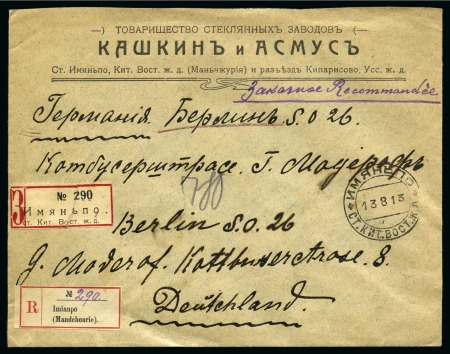 —) ТОВАРИЩЕСТВО СТЕКЛЯННЫХЪ ЗАВОДОВЪ (—
КАШКИНЪ и АСМУСЪ
Ст. Имяньпо, Кит. Вост. ж. д. (Маньчжурія) и разъѣздъ Кипарисово, Усс. ж. д.
Заказное Recommandée
Германія Берлинъ S.O 26.
Котбусерштрасс. Г. Модерофъ
780
З
№ 290
Имяньпо.
ст. Кит. Вост. ж.д.
ИМЯНЬПО
13 8 13
СТ. КИТ. ВОСТ. Ж. Д.
Berlin S.O. 26
G. Moderof. Kottbuserstrose. 8.
R
№ 290.
Imianpo
(Mandchourie).
Deutschland.